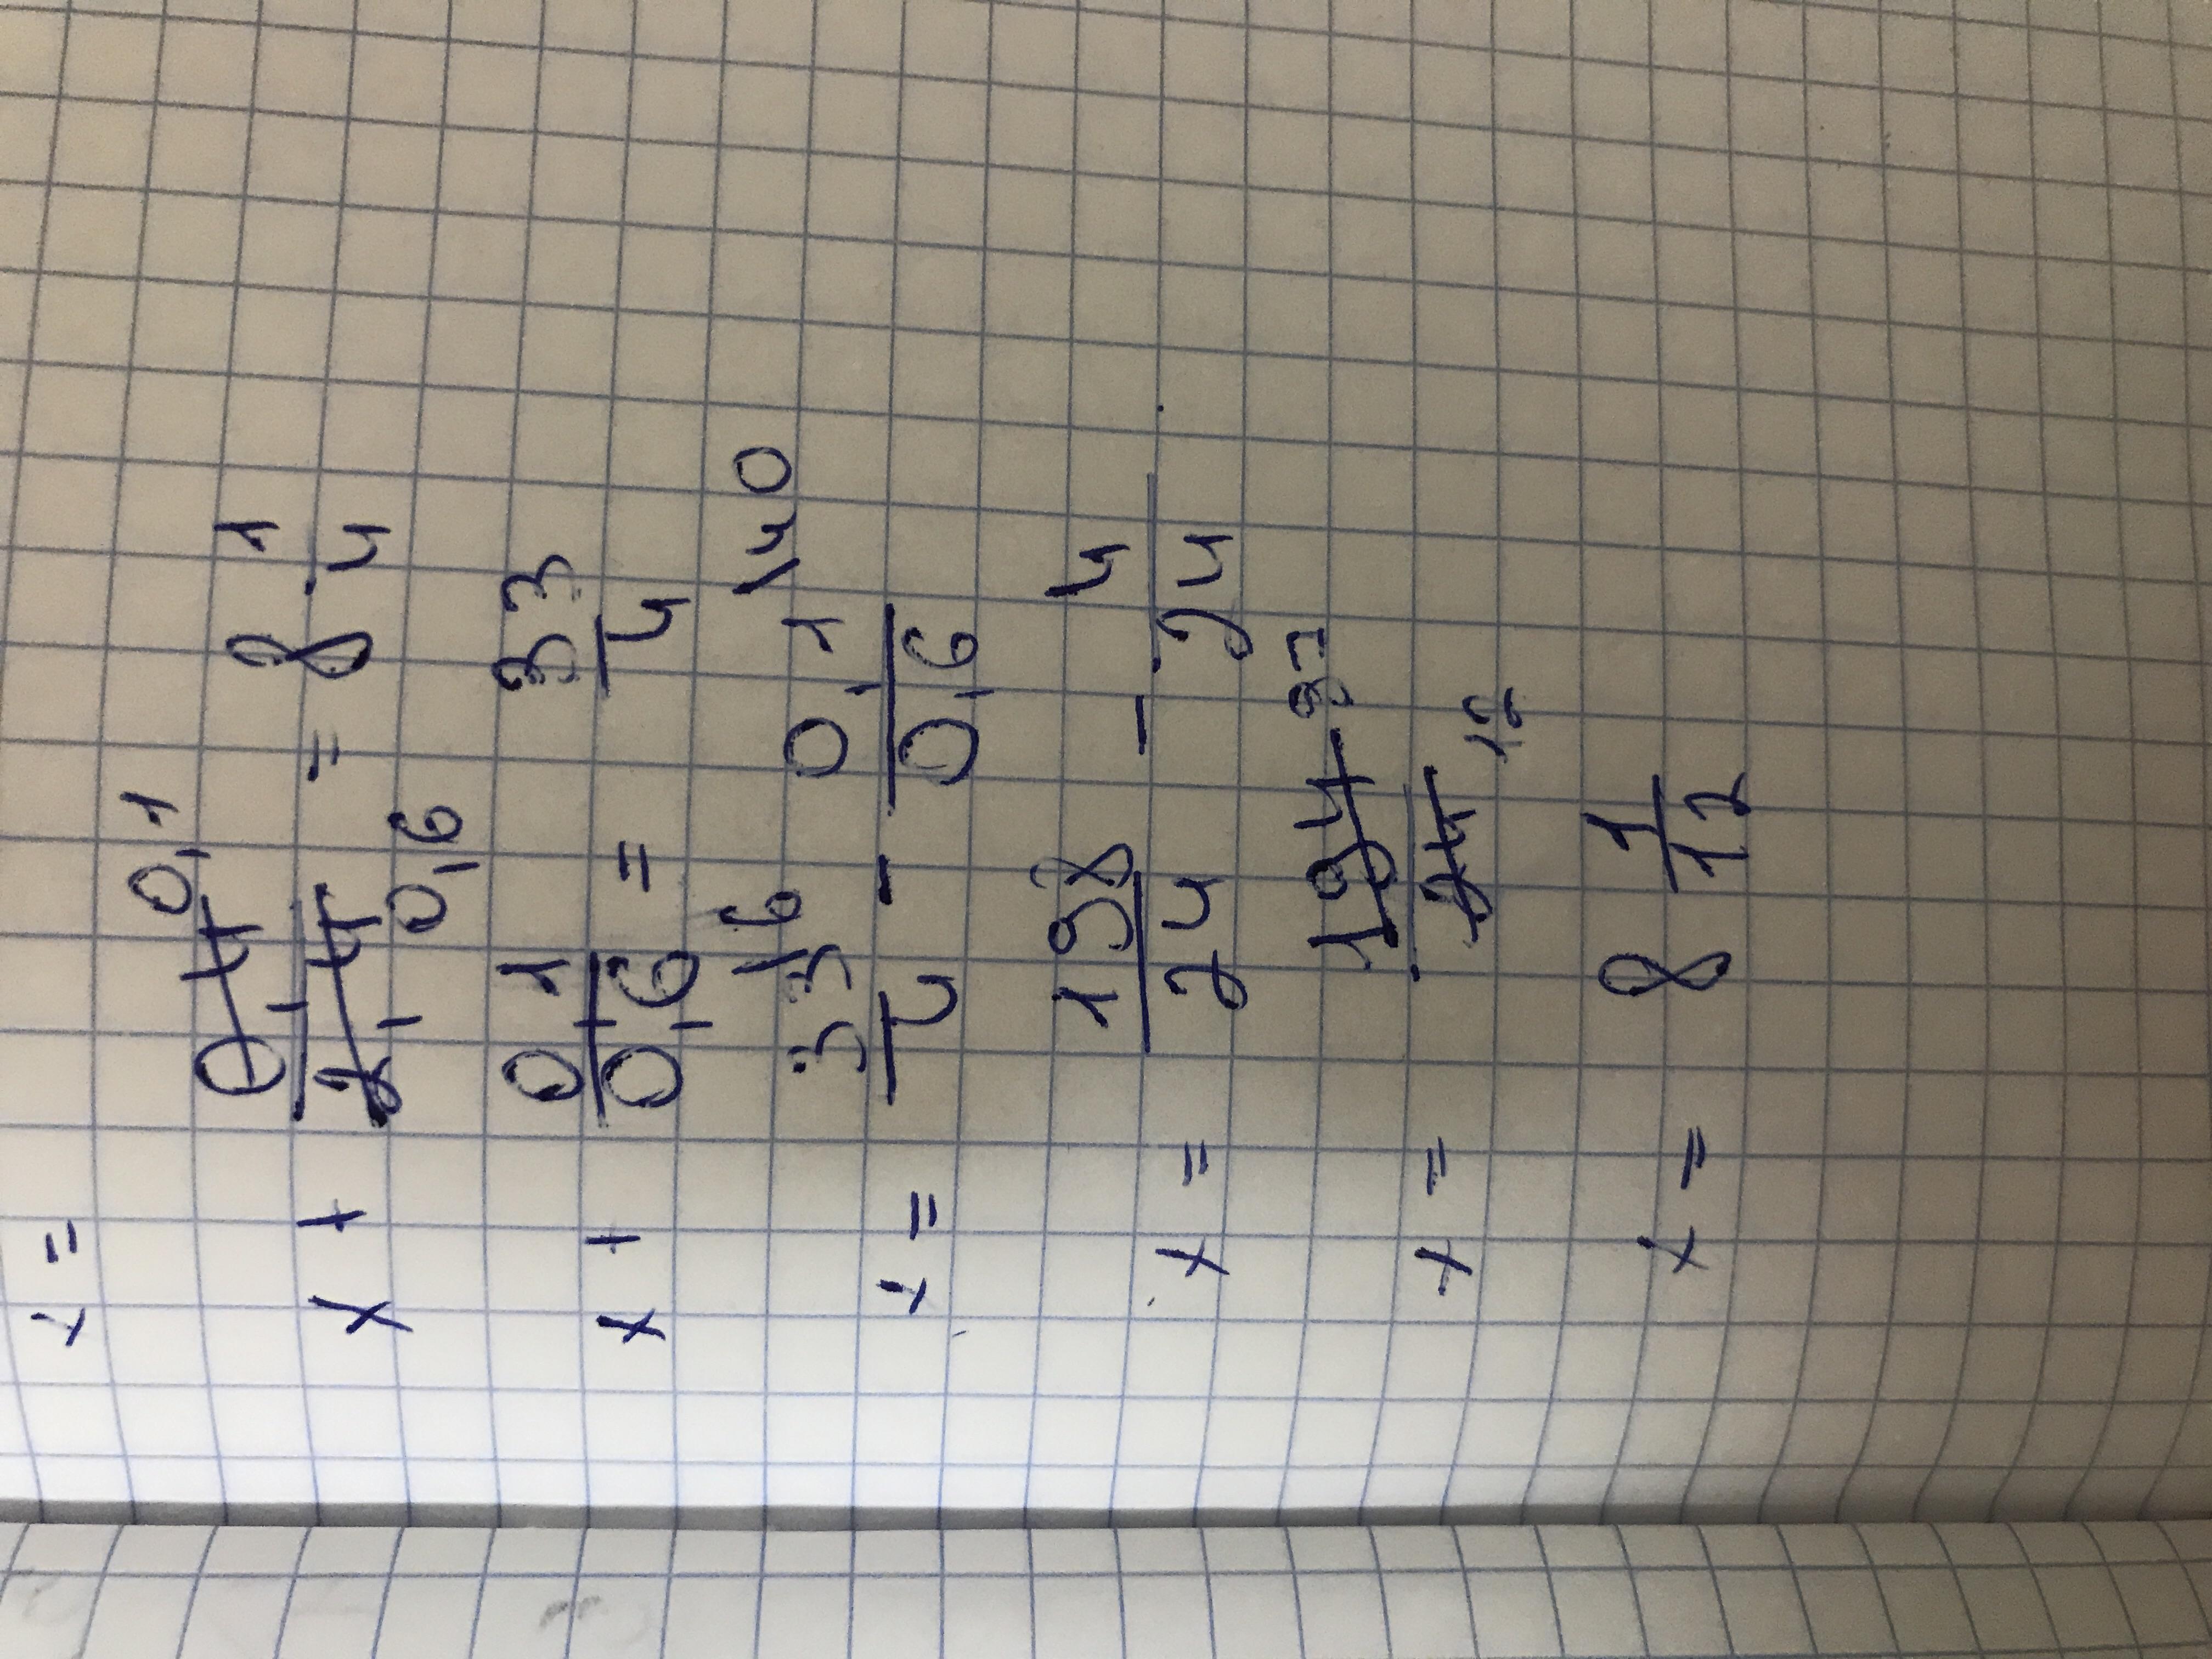 x =
x + 0,4/2,4 0,1 0,6 = 8 1/4
x + 0,1/0,6 = 33/4
x = 33/4 \6 - 0,1/0,6 \40
x = 198/24 - 4/24
x = 194/24 97 12
x = 8 1/12